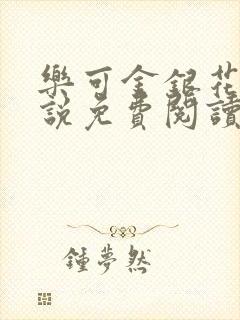 樂可金銀花
說免費閱讀
鍾夢然